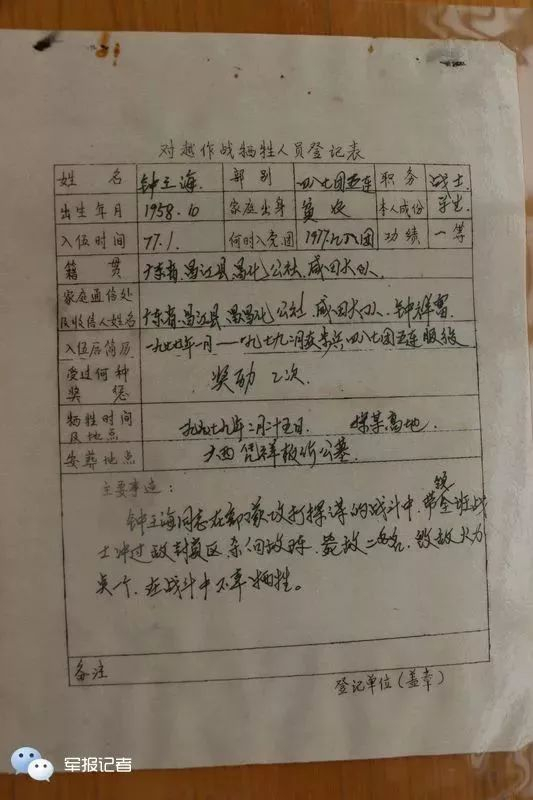 对越作战牺牲人员登记表
姓名 钟主海. 部别 四八七团五连 职务 战士
出生年月 1958.10 家庭出身 贫农 本人成份 学生
入伍时间 77.1. 何时入党团 1977.入团 功绩 一等
籍贯 广东省.昌江县.昌化公社.咸田大队.
家庭通信处及收信人姓名 广东省.昌江县.昌化公社.咸田大队.
入伍后简历 一九七七年一月——一九七九二月在 四八七团五连服役
受过何种奖惩 奖励 2次.
牺牲时间及地点 一九七九年二月二十五日. 高地
安葬地点 广西凭祥 公墓.
主要事迹:
钟主海同志在 战斗中.带领全班战
士冲过敌封 区.杀向敌 .毙敌二名.毁敌火力
点一个.在战斗中不幸牺牲。
备注
登记单位(盖章)
军报记者